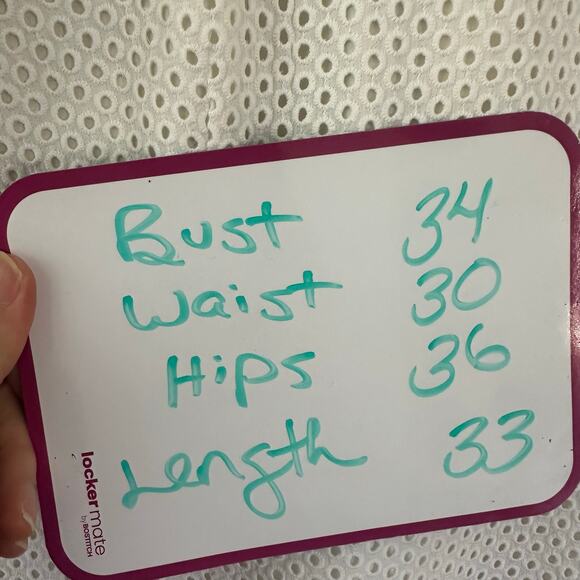 Bust 34
Waist 30
Hips 36
Length 33
lockermate
by BOSTITCH